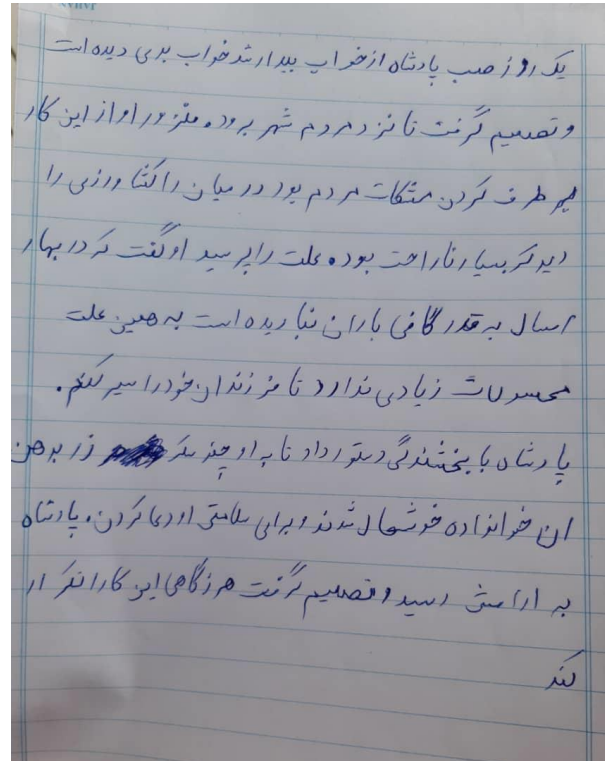 یک روز صب پادشاه از خواب بیدار شد خواب بدی دیده است
و تصمیم گرفت تا نزد مردم شهر بروده منزور او از این کار
بر طرف کردن مشکات مردم بود در میان را کشاورزی را
دید که بسیار ناراحت بوده علت را پرسید او گفت که در بهار
امسال به قدر کافی باران نباریده است به همین علت
محصولات زیادی ندارد تا فرزندان خود را سیر کنم.
پادشاه با بخشندگی دستور داد تا به او چند سکه زر بدهن
ان خوانواده خوشحال شدند و برای سلامتی او دعا کردن. پادشاه
به ارامش رسید و تصمیم گرفت هرزگاهی این کارا تکرار
کند